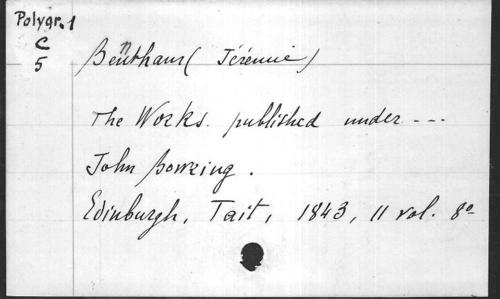 Polygr. 1
C
5
Bentham (Jérémie)
The Works. published under ---
John Bowring.
Edinburgh, Tait, 1843, 11 vol. 8º